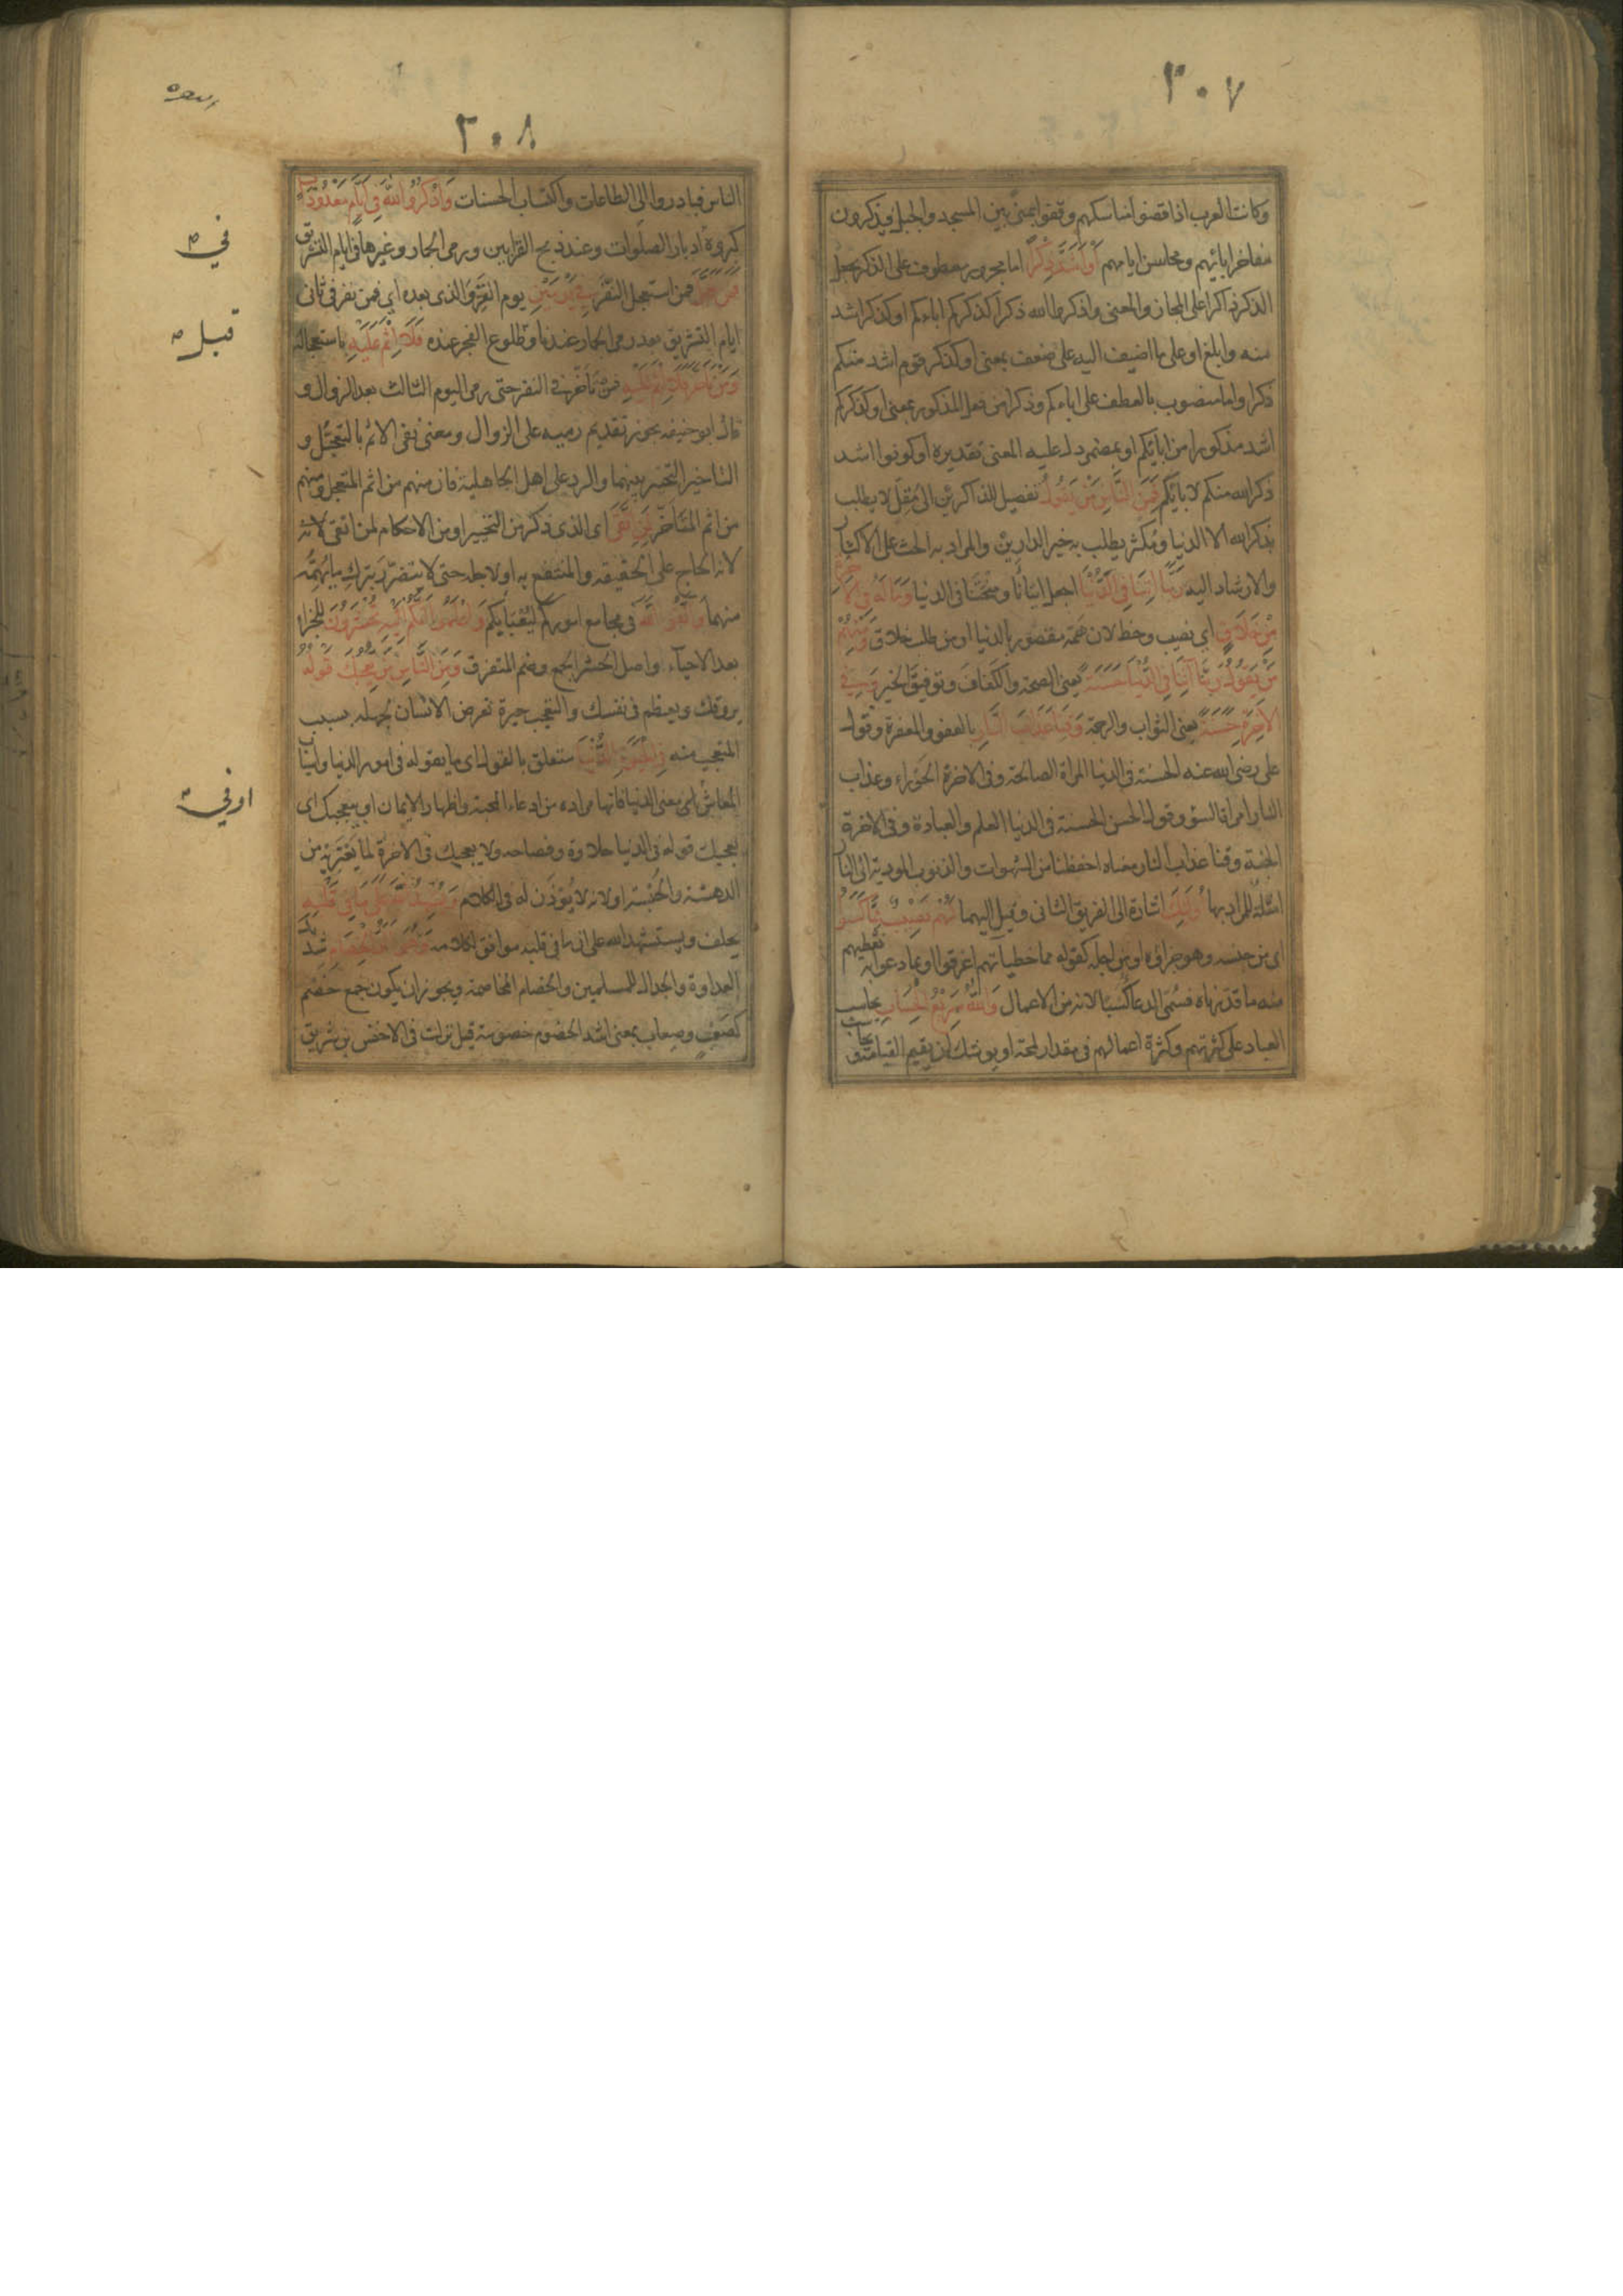 ٣٠٧
وكانت العرب اذا قضوا مناسكهم وقفوا بمنى بين المسجد والجبل فيذكرون
مفاخر ابائهم ومحاسن ايامهم أَوْ أَشَدَّ ذِكْرًا اما مجرور معطوف على الذكر بجعل
الذكر ذاكرا على المجاز والمعنى واذكروا الله ذكرا كذكركم اباءكم او كذكر اشد
منه وابلغ او على ما اضيف اليه على ضعف بمعنى او كذكر قوم اشد منكم
ذكرا واما منصوب بالعطف على اباءكم وذكرا من فعل المذكور بمعنى او كذكركم
اشد مذكورا من ابائكم او بمضمر دل عليه المعنى تقديره او كونوا اشد
ذكرا لله منكم لابائكم فَمِنَ النَّاسِ مَنْ يَقُولُ تفصيل للذاكرين الى مقل لا يطلب
بذكر الله الا الدنيا ومكثر يطلب به خير الدارين والمراد به الحث على الاكثار
والارشاد اليه رَبَّنَا اٰتِنَا فِي الدُّنْيَا اجعل ايتاءنا ومنحتنا فى الدنيا وَمَا لَهُ فِي الْاٰخِرَةِ
مِنْ خَلَاقٍ اي نصيب وحظ لان همه مقصور بالدنيا او من طلب خلاق وَمِنْهُمْ
مَنْ يَقُولُ رَبَّنَا آتِنَا فِي الدُّنْيَا حَسَنَةً يعني الصحة والكفاف وتوفيق الخير وَفِي
الْآخِرَةِ حَسَنَةً يعنى الثواب والرحمة وَقِنَا عَذَابَ النَّارِ بالعفو والمغفرة وقول
على رضى الله عنه الحسنة فى الدنيا المراة الصالحة وفى الاخرة الحوراء وعذاب
النار امراة السؤ وقول الحسن الحسنة فى الدنيا العلم والعبادة وفى الاخرة
الجنة وقنا عذاب النار معناه احفظنا من الشهوات والذنوب المودية الى النار
امثلة للمراد بها أُولٰئِكَ اشارة الى الفريق الثانى وقيل اليهما لَهُمْ نَصِيبٌ مِمَّا كَسَبُوا
اى من جنسه وهو جزاؤه او من اجله كقوله مما خطيآتهم اغرقوا او مما دعوا به نعطيهم
منه ما قدرناه فسمى الدعا كسبا لانه من الاعمال وَاللّٰهُ سَرِيعُ الْحِسَابِ يحاسب
العباد على كثرتهم وكثرة اعمالهم فى مقدار لمحة او يوشك ان يقيم القيامة و يحاسب
٣٠٨
الناس فبادروا الى الطاعات واكتساب الحسنات وَاذْكُرُوا اللّٰهَ فِي أَيَّامٍ مَعْدُودَاتٍ
كبروه ادبار الصلوات وعند ذبح القرابين ورمى الجمار وغيرها فى ايام التشريق
فَمَنْ تَعَجَّلَ فمن استعجل النفر فِي يَوْمَيْنِ يوم القر والذى بعده اي فمن نفر فى ثانى
ايام التشريق بعد رمى الجمار عندنا وطلوع الفجر عنده فَلَا إِثْمَ عَلَيْهِ باستعجاله
وَمَنْ تَأَخَّرَ فَلَا إِثْمَ عَلَيْهِ فمن تأخر فى النفر حتى رمى اليوم الثالث بعد الزوال و
قال ابو حنيفه يجوز تقديم رميه على الزوال ومعنى نفى الاثم بالتعجيل و
التاخير التخيير بينهما والرد على اهل الجاهلية فان منهم من اثم المتعجل ومنهم
من اثم المتأخر لِمَنِ اتَّقَى اى الذى ذكر من التخيير او من الاحكام لمن اتقى لانه
لانه الحاج على الحقيقه والمنتفع به او لاجله حتى لا يتضرر بترك ما يهمه
منهما وَاتَّقُوا اللّٰهَ فى مجامع اموركم ليعبأ بكم وَاعْلَمُوا أَنَّكُمْ إِلَيْهِ تُحْشَرُونَ للجزاء
بعد الاحياء واصل الحشر الجمع وضم المتفرق وَمِنَ النَّاسِ مَنْ يُعْجِبُكَ قَوْلُهُ
يروقك ويعظم فى نفسك والتعجب حيرة تعرض الانسان لجهله بسبب
المتعجب منه فِي الْحَيٰوةِ الدُّنْيَا متعلق بالقول اى ما يقوله فى امور الدنيا واسباب
المعاش او فى معنى الدنيا فانها مراده من ادعاء المحبة واظهار الايمان او يعجبك اى
يعجبك قوله فى الدنيا حلاوة وفصاحه ولا يعجبك فى الاخرة لما يعتريه من
الدهشة والحبسة او لانه لا يؤذن له فى الكلام وَيُشْهِدُ اللّٰهَ عَلَى مَا فِي قَلْبِهِ
يحلف ويستشهد الله على ان ما فى قلبه موافق لكلامه وَهُوَ أَلَدُّ الْخِصَامِ شديد
العداوة والجدال للمسلمين والخصام المخاصمة ويجوز ان يكون جمع خصم
كصعب وصعاب بمعنى اشد الخصوم خصومة قيل نزلت فى الاخنس بن شريق
في
قبل
او في